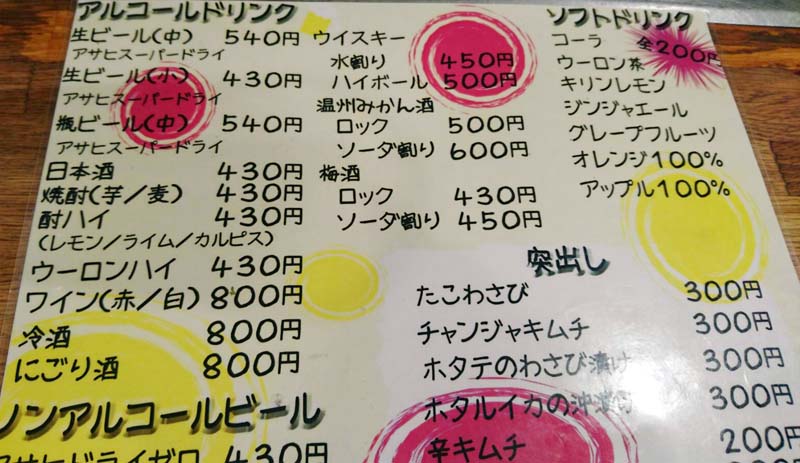 アルコールドリンク
生ビール(中) 540円
アサヒスーパードライ
生ビール(小) 430円
アサヒスーパードライ
瓶ビール(中) 540円
アサヒスーパードライ
日本酒 430円
焼酎(芋/麦) 430円
酎ハイ 430円
(レモン/ライム/カルピス)
ウーロンハイ 430円
ワイン(赤/白) 800円
冷酒 800円
にごり酒 800円
ノンアルコールビール
アサヒドライゼロ 430円
ウイスキー
水割り 450円
ハイボール 500円
温州みかん酒
ロック 500円
ソーダ割り 600円
梅酒
ロック 430円
ソーダ割り 450円
ソフトドリンク
全200円
コーラ
ウーロン茶
キリンレモン
ジンジャエール
グレープフルーツ
オレンジ100%
アップル100%
突出し
たこわさび 300円
チャンジャキムチ 300円
ホタテのわさび漬け 300円
ホタルイカの沖漬け 300円
辛キムチ 200円